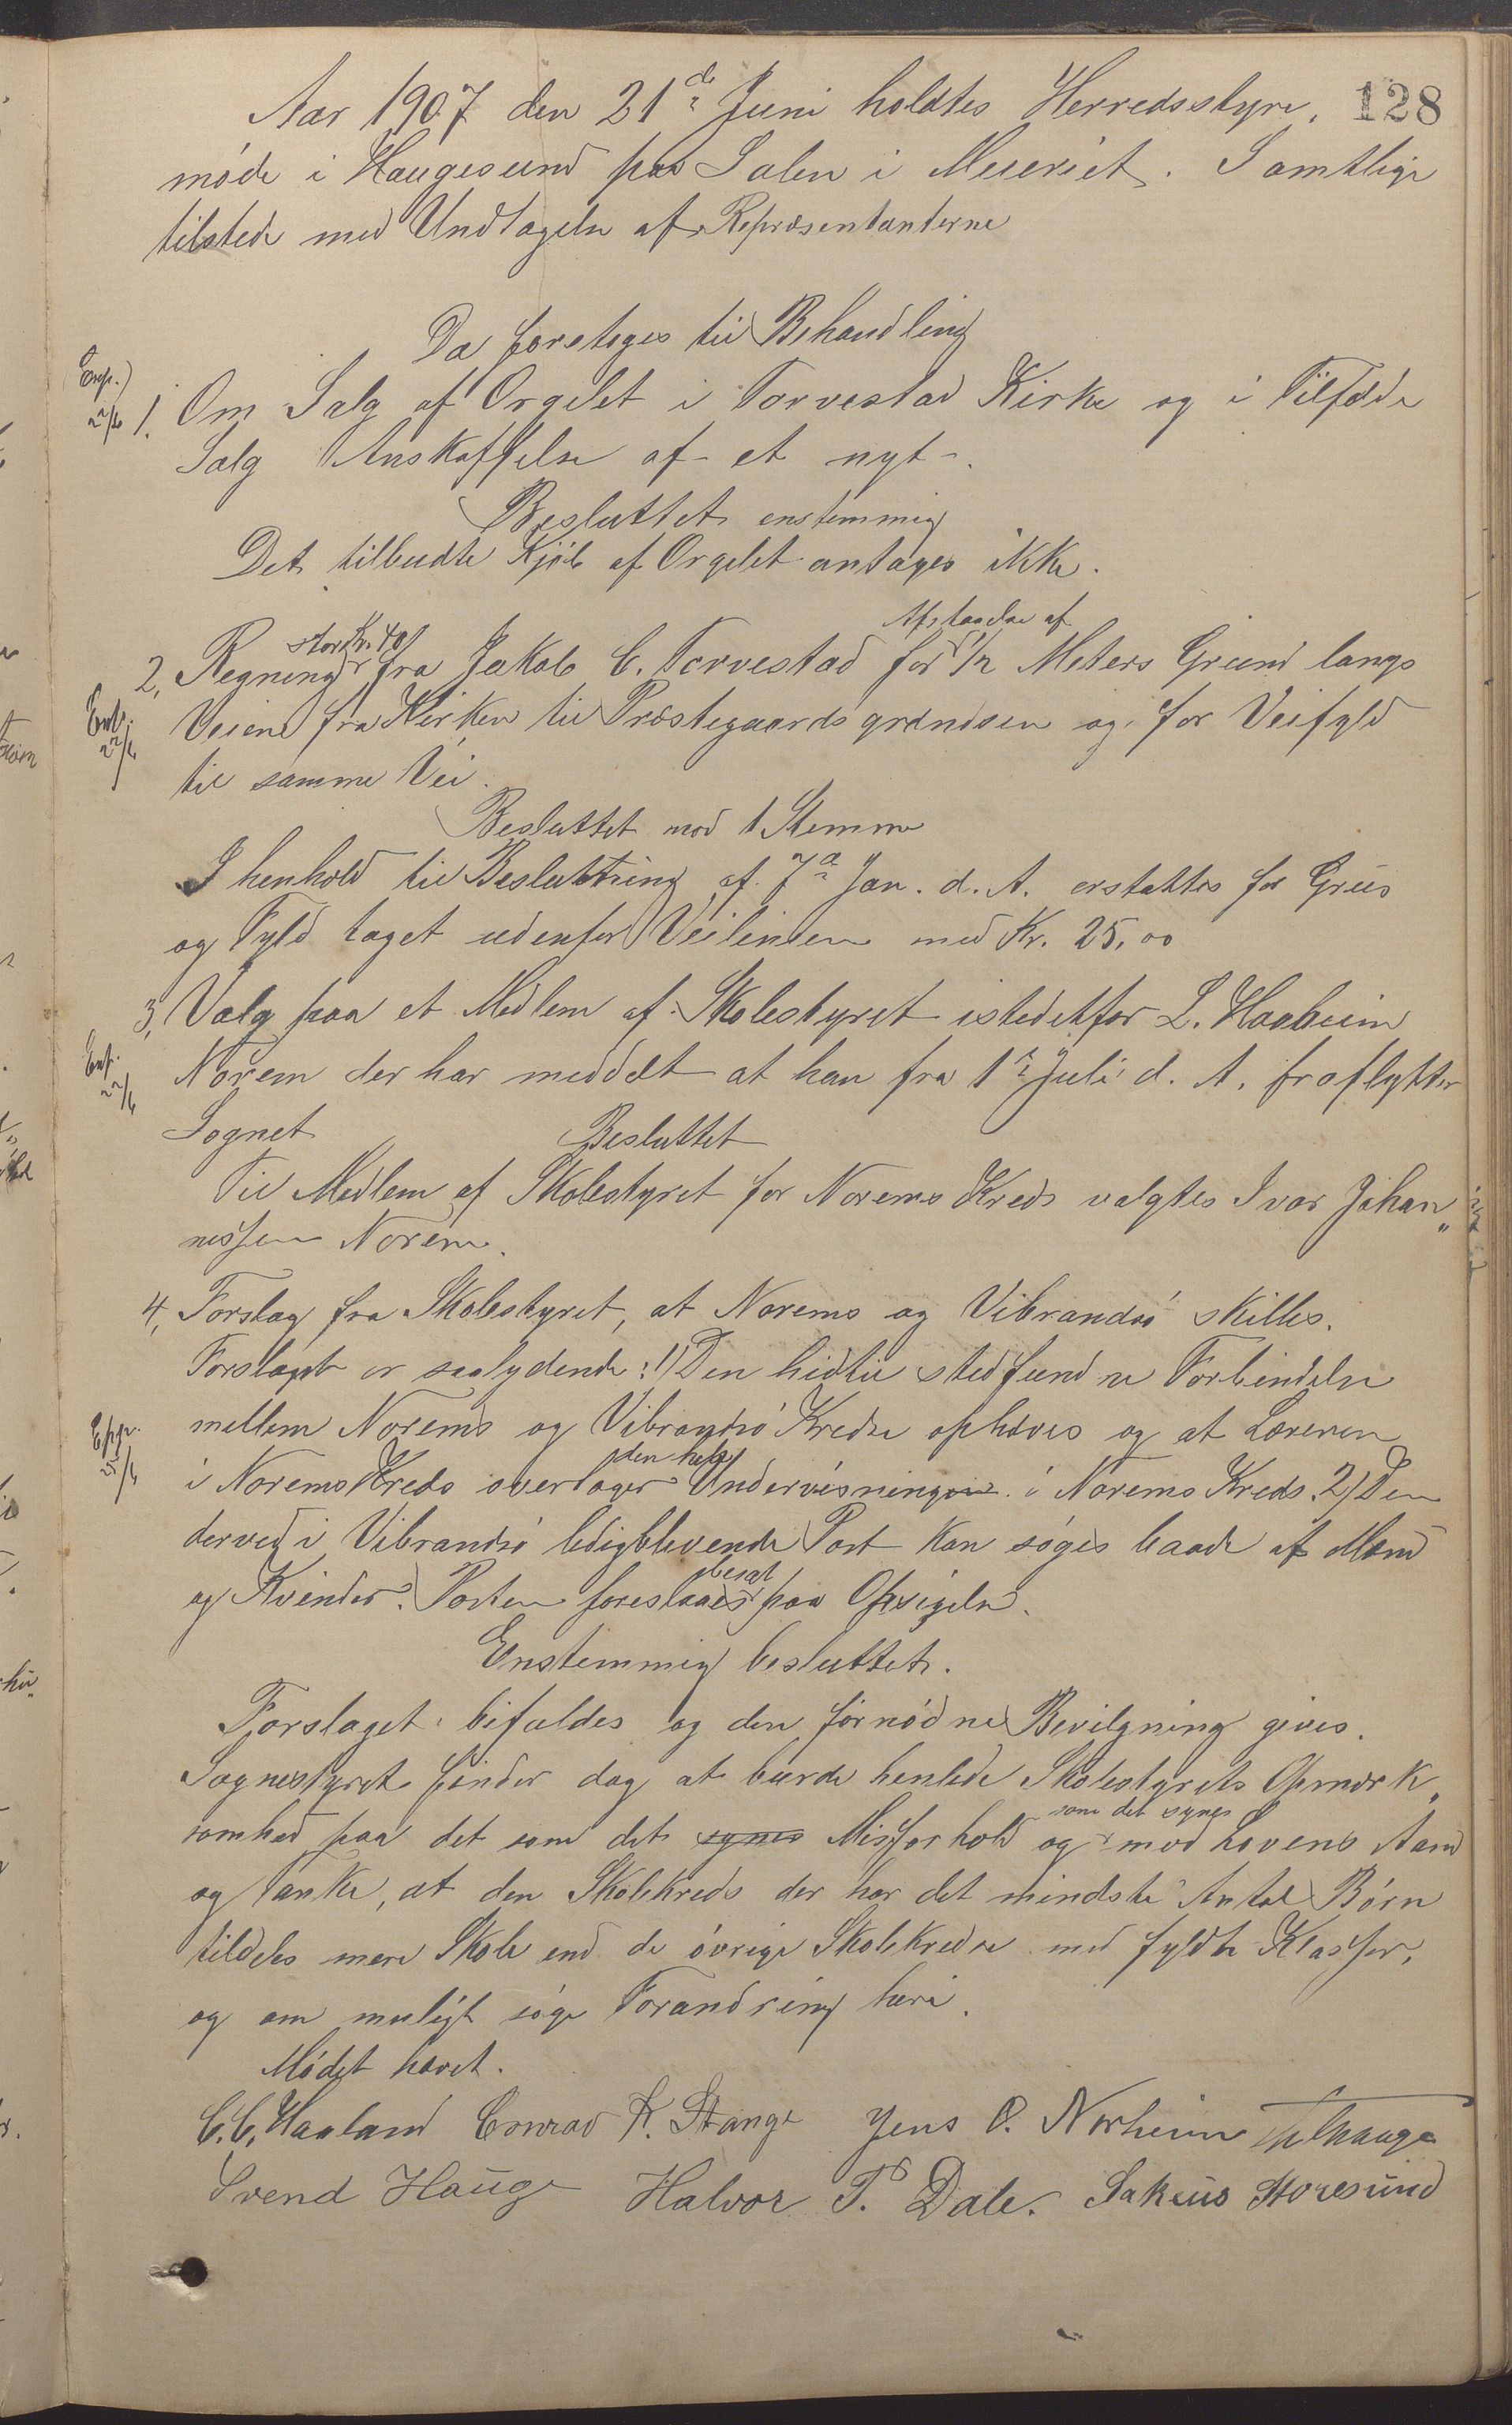 128
Aar 1907 den 21de Juni holdtes Herredsstyre,
møde i Haugesund paa Salen i Meieriet. Samtlige
tilstede med Undtagelse af Repræsentanterne
Da foretoges til Behandling
Exp.
22/6
1. Om Salg af Orgelet i Torvestad Kirke og i Tilfælde
Salg Anskaffelse af et nyt.
Besluttet enstemmig
Det tilbudte Kjøb af Orgelet antages ikke.
stor Kr. 40 Afstaaelse af
2, Regning fra Jakob C. Torvestad for 1/2 Meters Grund langs
Exp.
22/6
Veien fra Kirken til Præstegaardsgrændsen og for Veifyld
til samme Vei.
Besluttet mod 1 Stemme
I henhold til Beslutning af 7de Jan. d. A. erstattes for Grus
og Fyld taget udenfor Veilinien med Kr. 25,00
3, Valg paa et Medlem af Skolestyret istedetfor L. Haaheim
Exp.
22/6
Norem der har meddelt at han fra 1ste Juli d. A. fraflytter
Sognet
Besluttet
Til Medlem af Skolestyret for Norems Kreds valgtes Ivar Johan„
nessen Norem.
4, Forslag fra Skolestyret, at Norems og Vibrandsø skilles.
Forslaget er saalydende: 1) Den hidtil stedfundne Forbindelse
mellem Norems og Vibrandsø Kredse ophæves og at Læreren
Exp.
25/6
den hele
i Norems Kreds overtager Undervisningen i Norems Kreds. 2) Den
derved i Vibrandsø ledigblevende Post kan søges baade af Mænd
besat
og Kvinder. Posten foreslaaes paa Opsigelse.
Enstemmig besluttet.
Forslaget bifaldes og den fornødne Bevilgning gives.
Sognestyret finder dog at burde henlede Skolestyrets Opmærk„
som det synes
somhed paa det som det synes Misforhold og mod Lovens Aand
og Tanke, at den Skolekreds der har det mindste Antal Børn
tildeles mere Skole end de øvrige Skolekredse med fyldte Klasser,
og om muligt søge Forandring heri.
Mødet hævet.
C. C. Haaland Conrad K. Stange Jens O. Norheim
Svend Hauge Halvor T. Dale. Sakeus Storesund